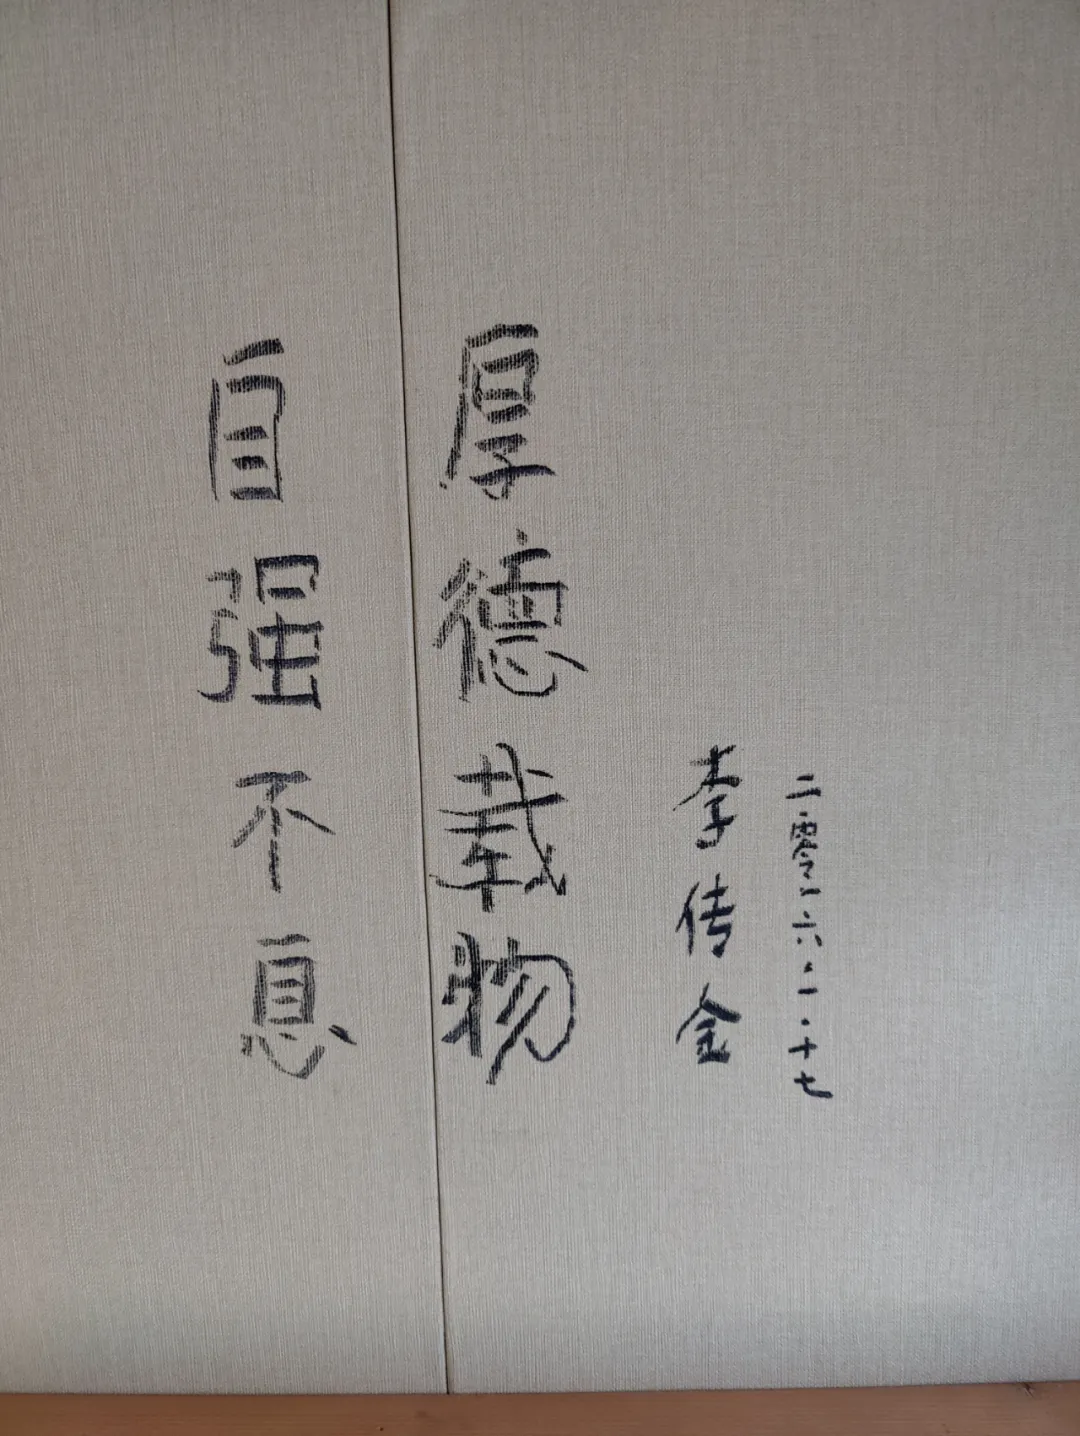 自强不息
厚德载物
李传金
二零一六·一·十七